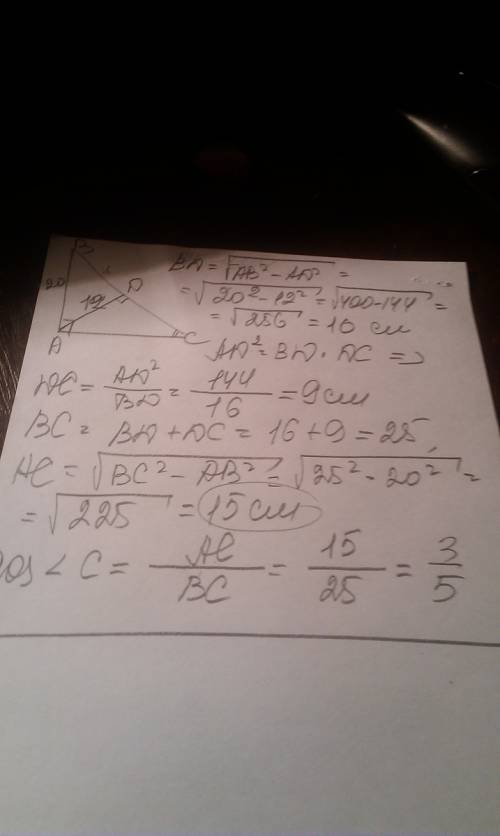 B
20
12
D
A
C
BD = √AB² − AD² =
= √20² − 12² = √400 − 144 =
= √256 = 16 см
AD² = BD · DC =>
DC = AD²/BD = 144/16 = 9 см
BC = BD + DC = 16 + 9 = 25,
AC = √BC² − AB² = √25² − 20² =
= √225 = 15 см
cos < C = AC/BC = 15/25 = 3/5